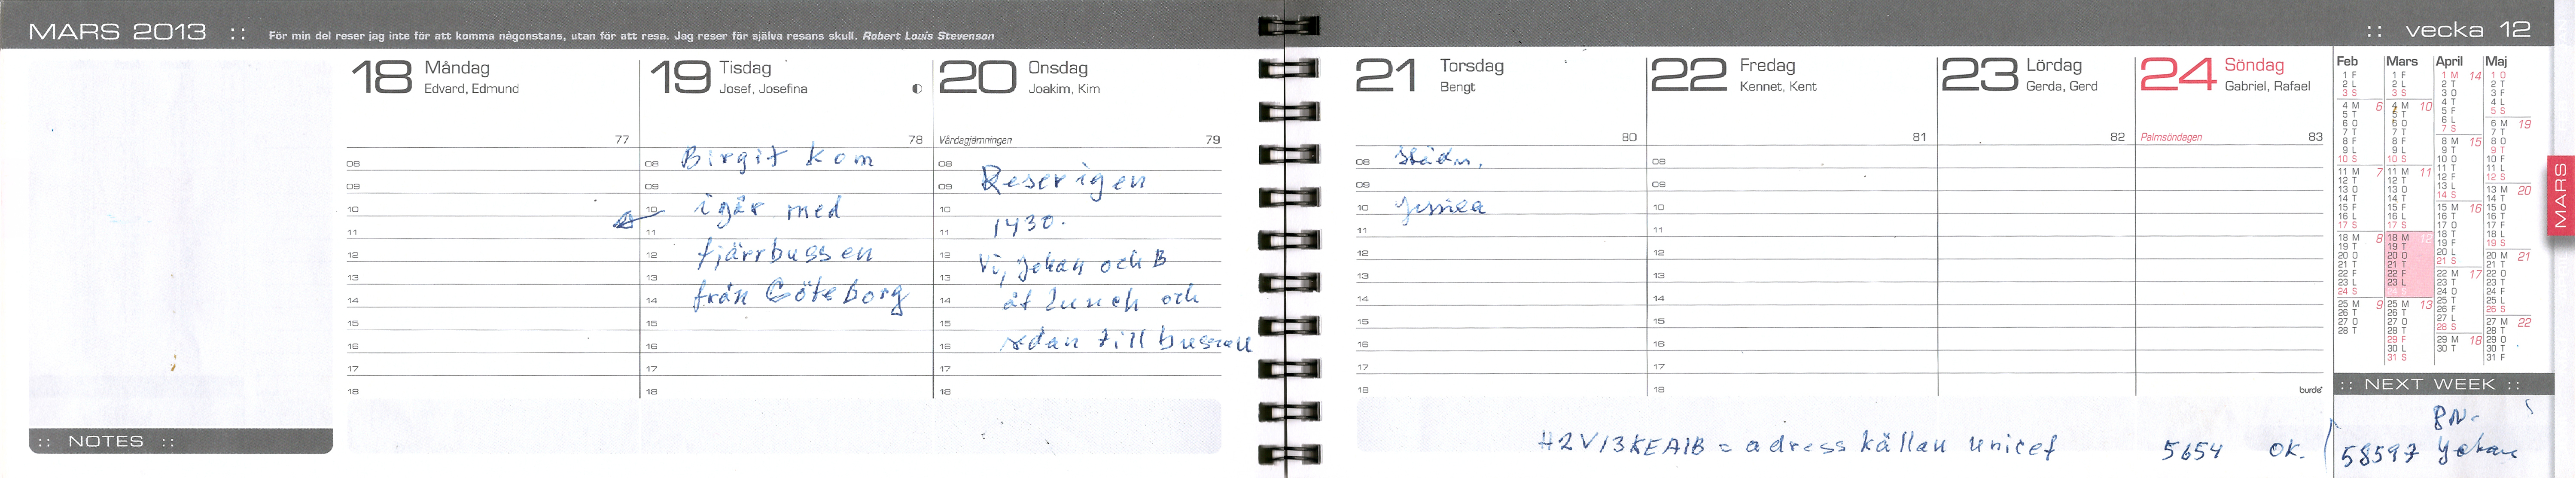 MARS 2013 :: För min del reser jag inte för att komma någonstans, utan för att resa. Jag reser för själva resans skull. Robert Louis Stevenson
18 Måndag
Edvard, Edmund
77
08
09
10
11
12
13
14
15
16
17
18
19 Tisdag
Josef, Josefina
78
08 Birgit kom
09
10 igår med
11
12 fjärrbussen
13
14 från Göteborg
15
16
17
18
20 Onsdag
Joakim, Kim
Vårdagjämningen 79
08
09 Reser igen
10
11 1430.
12 Vi, Johan och B
13
14 åt lunch och
15
16 sdan till bussen
17
18
:: NOTES ::
:: vecka 12
21 Torsdag
Bengt
80
08 Städn.
09
10 Jessica
11
12
13
14
15
16
17
18
22 Fredag
Kennet, Kent
81
08
09
10
11
12
13
14
15
16
17
18
23 Lördag
Gerda, Gerd
82
24 Söndag
Gabriel, Rafael
Palmsöndagen 83
burde
H2V13KEA1B = adress källan unicef 5654 OK.
Feb
1 F
2 L
3 S
4 M 6
5 T
6 O
7 T
8 F
9 L
10 S
11 M 7
12 T
13 O
14 T
15 F
16 L
17 S
18 M 8
19 T
20 O
21 T
22 F
23 L
24 S
25 M 9
26 T
27 O
28 T
Mars
1 F
2 L
3 S
4 M 10
5 T
6 O
7 T
8 F
9 L
10 S
11 M 11
12 T
13 O
14 T
15 F
16 L
17 S
18 M 12
19 T
20 O
21 T
22 F
23 L
24 S
25 M 13
26 T
27 O
28 T
29 F
30 L
31 S
April
1 M 14
2 T
3 O
4 T
5 F
6 L
7 S
8 M 15
9 T
10 O
11 T
12 F
13 L
14 S
15 M 16
16 T
17 O
18 T
19 F
20 L
21 S
22 M 17
23 T
24 O
25 T
26 F
27 L
28 S
29 M 18
30 T
Maj
1 O
2 T
3 F
4 L
5 S
6 M 19
7 T
8 O
9 T
10 F
11 L
12 S
13 M 20
14 T
15 O
16 T
17 F
18 L
19 S
20 M 21
21 T
22 O
23 T
24 F
25 L
26 S
27 M 22
28 T
29 O
30 T
31 F
MARS
:: NEXT WEEK ::
PN-
58597 Johan